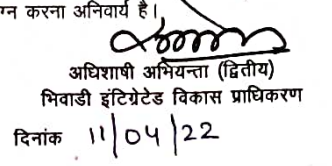 ग्न करना अनिवार्य है।
अधिशाषी अभियन्ता (द्वितीय)
भिवाडी इंटिग्रेटेड विकास प्राधिकरण
दिनांक 11/04/22